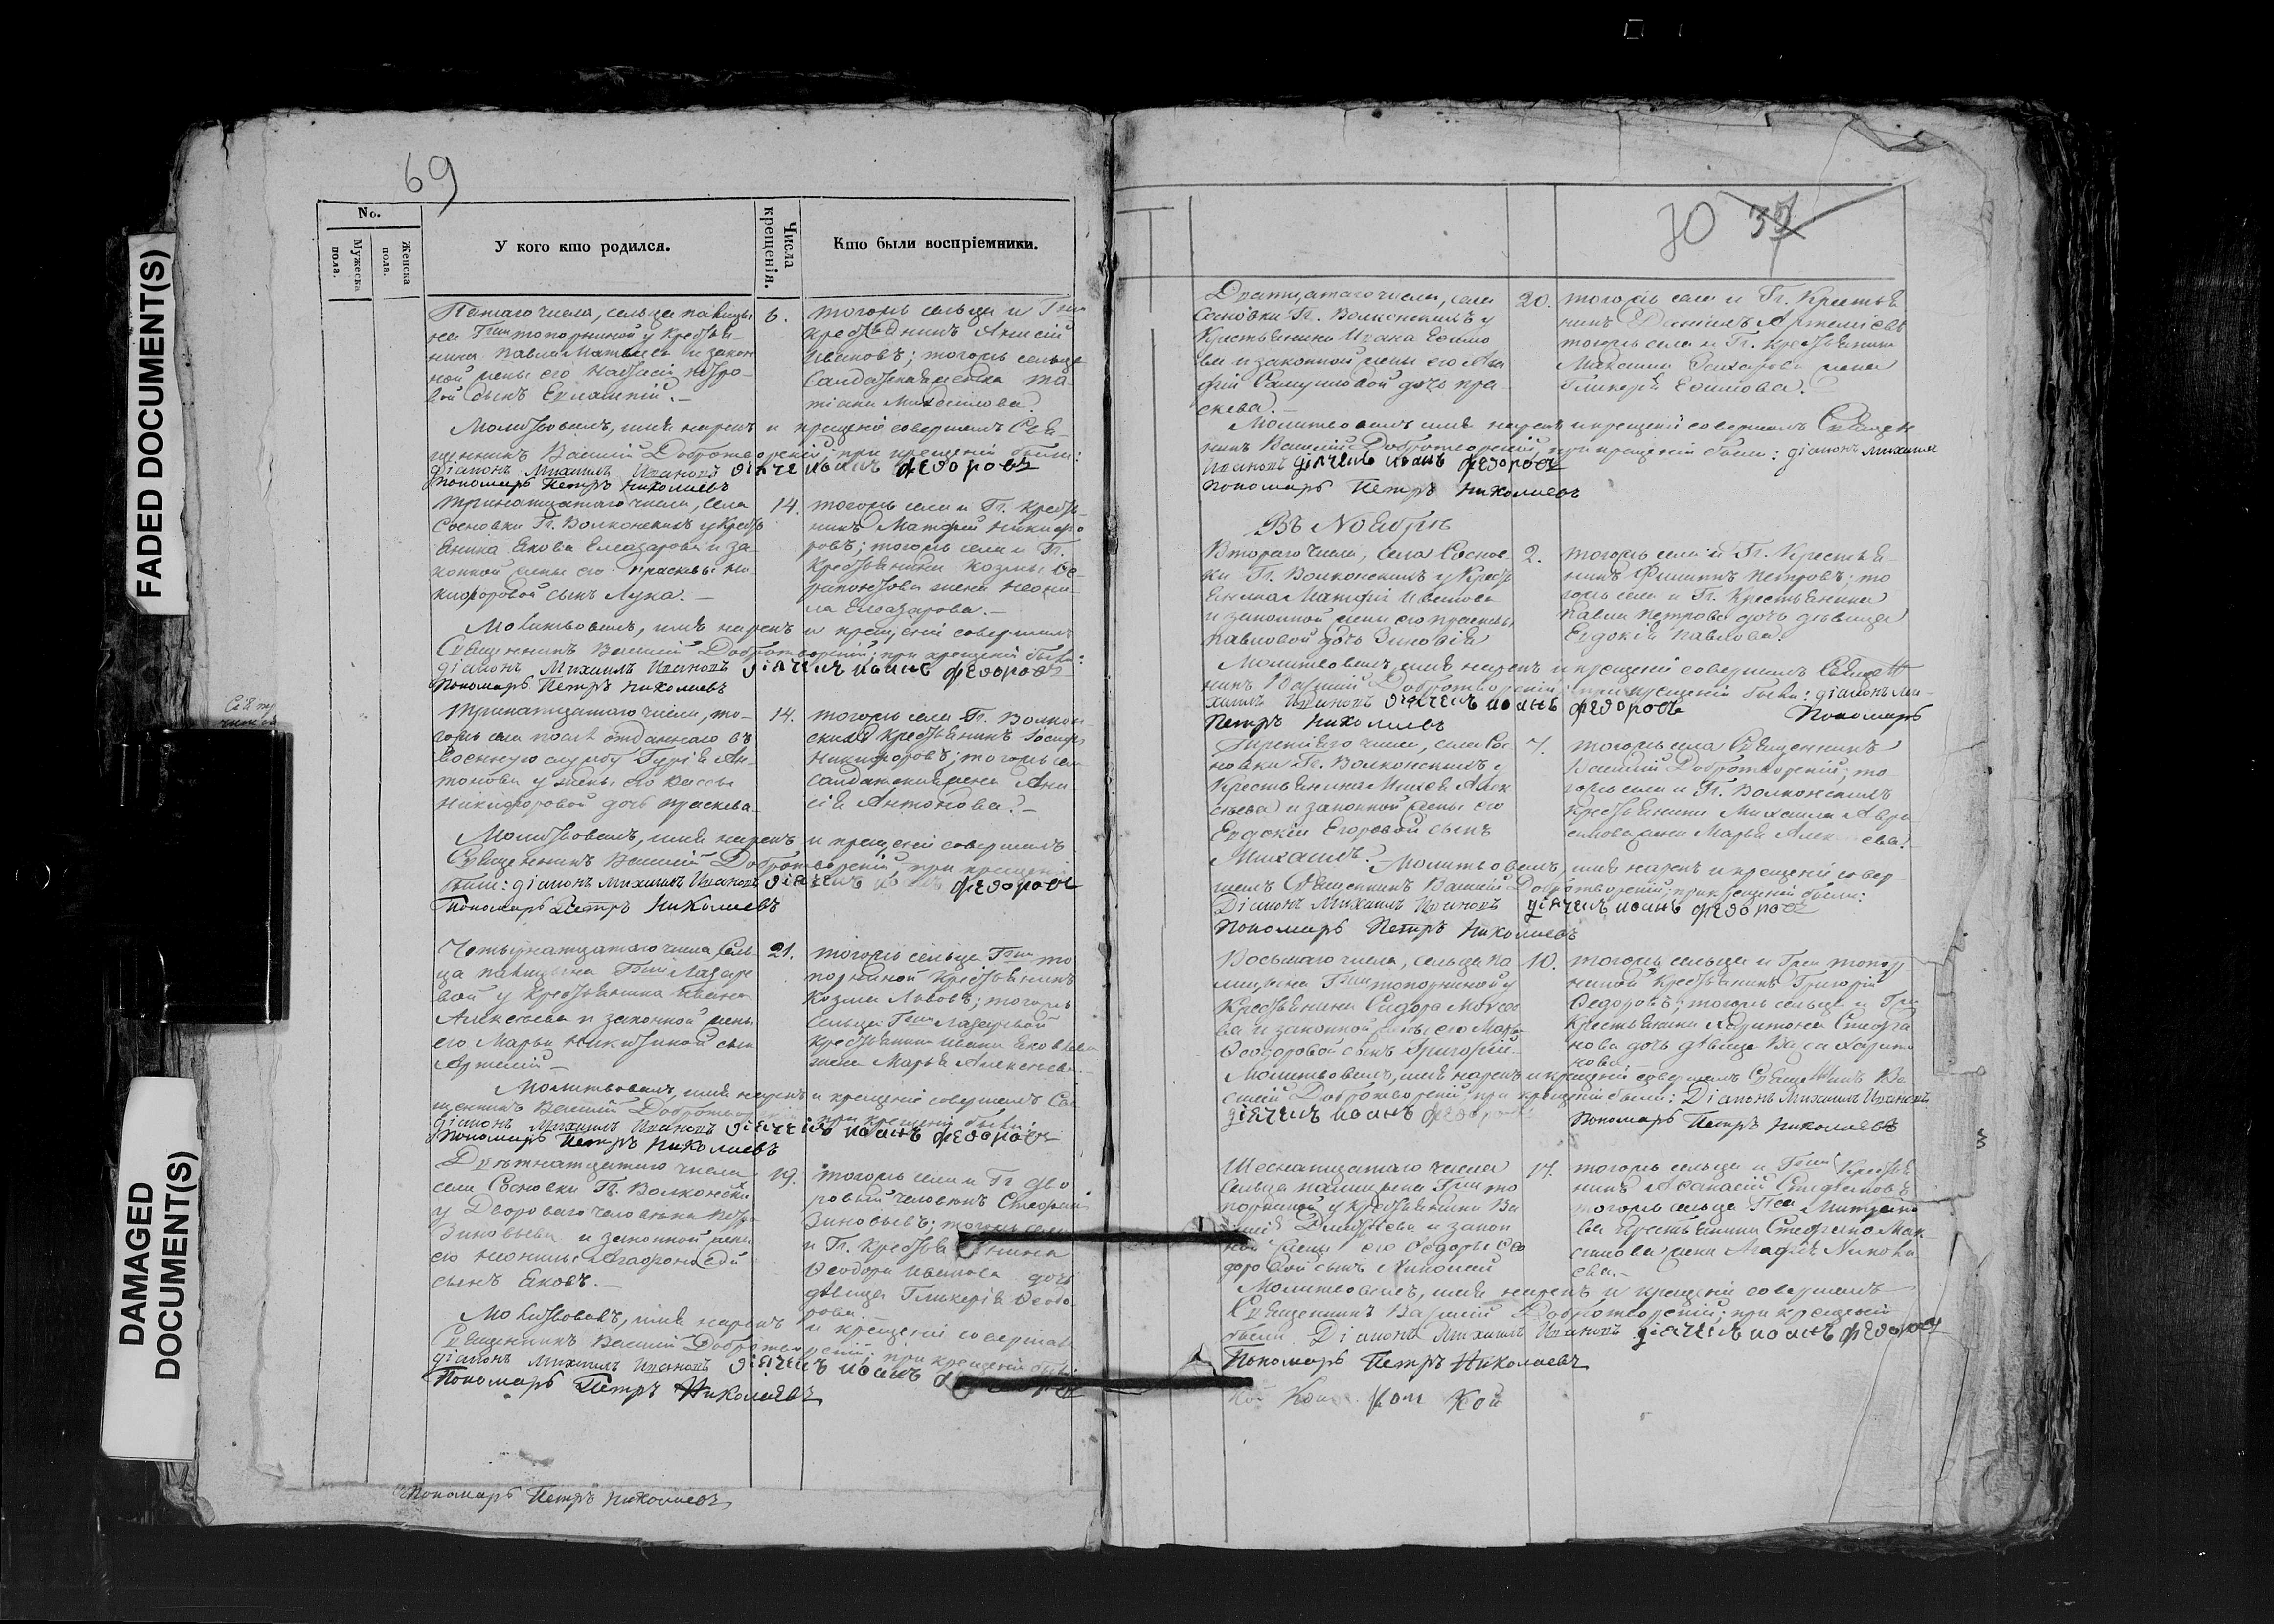 FADED DOCUMENT(S)
DAMAGED
DOCUMENT(S)
69
No.
Мужеска
пола.
Женска
пола.
У кого кто родился.
Числа
крещенія.
Кто были воспріемники.
Пятаго числа, сельца
на Топорниной у Крестья
нина Павла Матвѣева и закон
ной жены его Настасіи Петро
вой сынъ
6.
тогожъ сельца и
крестьянинъ Алексій
Ивановъ; тогожъ сельца
Салдатская
тіана Михайлова.
Молитвовалъ, имя нарекъ и крещеніе совершалъ Свя
щенникъ Василій Добротворскій; при крещеніи были:
діаконъ Михаилъ Ивановъ дьячекъ Иоанъ Федоровъ
пономарь Петръ Николаевъ
Тринатцатаго числа, села
Сосновки Гг. Волконскихъ у Кресть
янина Якова Елеазарова и за
конной жены его Прасковьи Ни
кифоровой сынъ Лука.
14.
тогожъ села и Гг. Кресть
нинъ Матфей Никифо
ровъ; тогожъ села и Гг.
Крестьянина Козмы
жена Неони
ла Елеазарова.
Молитвовалъ, имя нарекъ и крещеніе совершалъ
Священникъ Василій Добротворскій; при крещеніи были:
діаконъ Михаилъ Ивановъ дьячекъ Иоанъ Федоровъ
Пономарь Петръ Николаевъ
Тринатцатаго числа, то
гожъ села послѣ отданнаго въ
военную службу Гурія Ан
тонова у жены его Вассы
Никифоровой дочь Праскева
14.
тогожъ села Гг. Волкон
скихъ крестьянинъ Іосифъ
Никифоровъ; тогожъ се
салдатская жена Ани
сія Антонова.
Молитвовалъ, имя нарекъ и крещеніе совершалъ
Священникъ Василій Добротворскій; при крещеніи
были: діаконъ Михаилъ Ивановъ дьячекъ Иоанъ Федоровъ
Пономарь Петръ Николаевъ
Четырнатцатаго числа Сель
ца Лазаре
вой у Крестьянина Ивана
Алексѣева и законной жены
его Марьи Никитиной сынъ
Артемій
21.
тогожъ сельца То
порниной Крестьянинъ
Козма Львовъ; тогожъ
сельца Лазаревой
Крестьянина Ивана Яковлева
жена Марья Алексѣева.
Молитвовалъ, имя нарекъ и крещеніе совершалъ Свя
щенникъ Василій Добротворскій при крещеніи были:
діаконъ Михаилъ Ивановъ дьячекъ Иоанъ Федоровъ
Пономарь Петръ Николаевъ
числа
села Сосновки Гг. Волконски
у Двороваго человѣка Петра
Зиновьева и законной жены
его Неонилы Агафоновой
сынъ Яковъ.
19.
тогожъ села и Гг дво
ровый человѣкъ Стефанъ
Зиновьевъ; тогожъ села
и Гг. Крестьянина
Ѳеодора Иванова дочь
дѣвица Гликерія Ѳеодо
рова.
Молитвовалъ, имя нарекъ и крещеніе совершалъ
Священникъ Василій Добротворскій; при крещеніи были
діаконъ Михаилъ Ивановъ дьячекъ Иоанъ
Пономарь Петръ Николаевъ
Пономарь Петръ Николаевъ
70
Дватцатаго числа, села
Сосновки Гг. Волконскихъ у
Крестьянина Ивана Ефимо
ва и законной жены его Ага
фіи Самуиловой дочь Пра
скева.
20.
тогожъ села и Гг. Крестья
нинъ Даніилъ Артеміевъ
тогожъ села и Гг. Крестьянина
жена
Гликерія Ефимова.
Молитвовалъ имя нарекъ и крещеніе совершалъ Священ
никъ Василій Добротворскій, при крещеніи были: діаконъ Михаилъ
Ивановъ дьячекъ Иоанъ Федоровъ
Пономарь Петръ Николаевъ
Въ Ноябрѣ
Втораго числа, села Соснов
ки Гг. Волконскихъ у Кресть
янина Матфія Иванова
и законной жены его Прасковьи
Павловой дочь Зиновія
2.
тогожъ села и Гг. Крестья
нинъ Филиппъ Петровъ; то
гожъ села и Гг. Крестьянина
Павла Петрова дочь дѣвица
Евдокія Павлова.
Молитвовалъ, имя нарекъ и крещеніе совершалъ Священ
никъ Василій Добротворскій при крещеніи были: діаконъ Ми
хаилъ Ивановъ дьячекъ Иоанъ Федоровъ Пономарь
Петръ Николаевъ
Третьяго числа, села Сос
новки Гг. Волконскихъ у
Крестьянина Алек
сѣева и законной жены его
Евдокіи Егоровой сынъ
Михаилъ.
7.
тогожъ села Священникъ
Василій Добротворскій; то
гожъ села и Гг. Волконскихъ
Крестьянина Михаила
жена Марья
Молитвовалъ, имя нарекъ и крещеніе совер
шалъ Священникъ Василій Добротворскій; при крещеніи были:
Діаконъ Михаилъ Ивановъ дьячекъ Иоанъ Федоровъ
Пономарь Петръ Николаевъ
Восьмаго числа, сельца Па
Топорниной у
Крестьянина Сидора
ва и законной жены его Марьи
Ѳеодоровой сынъ Григорій
10.
тогожъ сельца и Топор
ниной Крестьянинъ Григорій
Ѳедоровъ; тогожъ сельца и
Крестьянина Харитона Стефа
нова дочь дѣвица Харито
нова.
Молитвовалъ, имя нарекъ и крещеніе совершалъ Священникъ Ва
силій Добротворскій при крещеніи были: Діаконъ Михаилъ Ивановъ
дьячекъ Иоанъ Федоровъ
Пономарь Петръ Николаевъ
Шеснатцатаго числа
Сельца То
порниной у Крестьянина Ва
и закон
ной жены его Ѳедоры Ѳео
доровой сынъ Николай
17.
тогожъ сельца и Крестья
нинъ Аѳанасій Стефановъ
тогожъ сельца
Крестьянина Стефана Мак
симова жена
Молитвовалъ, имя нарекъ и крещеніе совершалъ
Священникъ Василій Добротворскій; при крещеніи
были Діаконъ Михаилъ Ивановъ дьячекъ Иоанъ Федоровъ
Пономарь Петръ Николаевъ